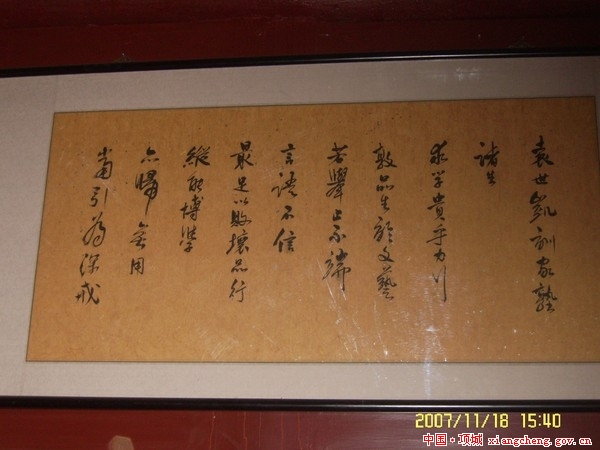 袁世凱訓家塾
諸生
求学貴乎力行
敦品先於文藝
若舉止不端
言語不信
最足以敗壞品行
縱能博学
亦歸無用
當引為深戒
2007/11/18 15:40
中国·项城 xiangcheng.gov.cn